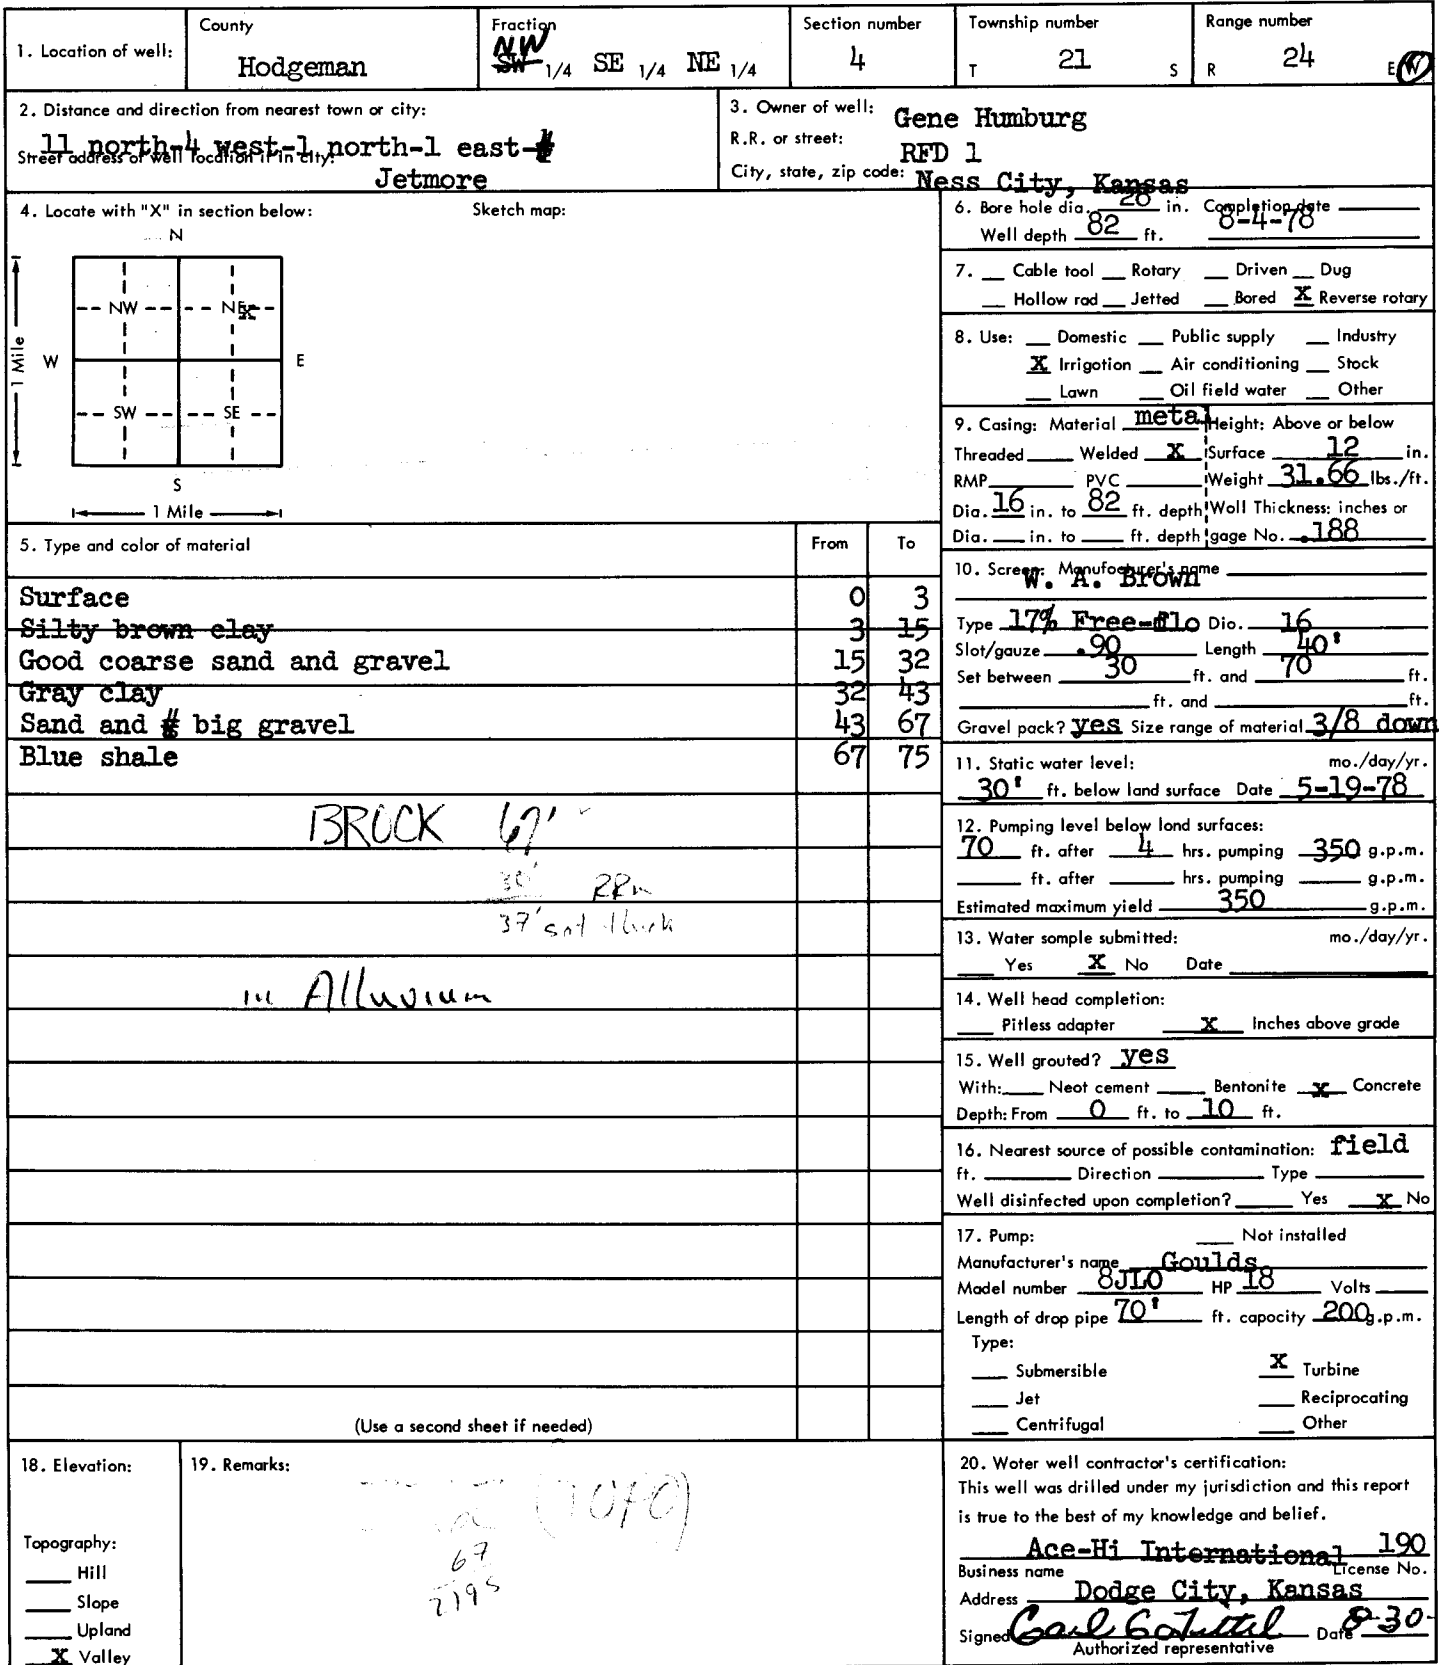 1. Location of well:
County
Hodgeman
Fraction
NW
SW 1/4 SE 1/4 NE 1/4
Section number
4
Township number
T 21 S
Range number
R 24 E W
2. Distance and direction from nearest town or city:
11 north-4 west-1 north-1 east-
Street address of well location if in city:
Jetmore
3. Owner of well: Gene Humburg
R.R. or street: RFD 1
City, state, zip code: Ness City, Kansas
4. Locate with "X" in section below:
Sketch map:
N
NW NE X
W E
SW SE
S
1 Mile
1 Mile
5. Type and color of material From To
Surface 0 3
Silty brown clay 3 15
Good coarse sand and gravel 15 32
Gray clay 32 43
Sand and # big gravel 43 67
Blue shale 67 75
BROCK 67'
30'
37' sat thick
in Alluvium
(Use a second sheet if needed)
6. Bore hole dia. 26 in. Completion date
Well depth 82 ft. 8-4-78
7. Cable tool Rotary Driven Dug
Hollow rod Jetted Bored X Reverse rotary
8. Use: Domestic Public supply Industry
X Irrigation Air conditioning Stock
Lawn Oil field water Other
9. Casing: Material metal Height: Above or below
Threaded Welded X Surface 12 in.
RMP PVC Weight 31.66 lbs./ft.
Dia. 16 in. to 82 ft. depth Wall Thickness: inches or
Dia. in. to ft. depth gage No. .188
10. Screen: Manufacturer's name
W. A. Brown
Type 17% Free-flo Dia. 16
Slot/gauze .90 Length 40'
Set between 30 ft. and 70 ft.
ft. and ft.
Gravel pack? yes Size range of material 3/8 down
11. Static water level: mo./day/yr.
30' ft. below land surface Date 5-19-78
12. Pumping level below land surfaces:
70 ft. after 4 hrs. pumping 350 g.p.m.
ft. after hrs. pumping g.p.m.
Estimated maximum yield 350 g.p.m.
13. Water sample submitted: mo./day/yr.
Yes X No Date
14. Well head completion:
Pitless adapter X Inches above grade
15. Well grouted? yes
With: Neat cement Bentonite X Concrete
Depth: From 0 ft. to 10 ft.
16. Nearest source of possible contamination: field
ft. Direction Type
Well disinfected upon completion? Yes X No
17. Pump: Not installed
Manufacturer's name Goulds
Model number 8JLO HP 18 Volts
Length of drop pipe 70' ft. capacity 200 g.p.m.
Type:
Submersible X Turbine
Jet Reciprocating
Centrifugal Other
18. Elevation:
Topography:
Hill
Slope
Upland
X Valley
19. Remarks:
(TOPO)
67
2195
20. Water well contractor's certification:
This well was drilled under my jurisdiction and this report
is true to the best of my knowledge and belief.
Ace-Hi International 190
Business name License No.
Address Dodge City, Kansas
Signed Date 8-30-
Authorized representative